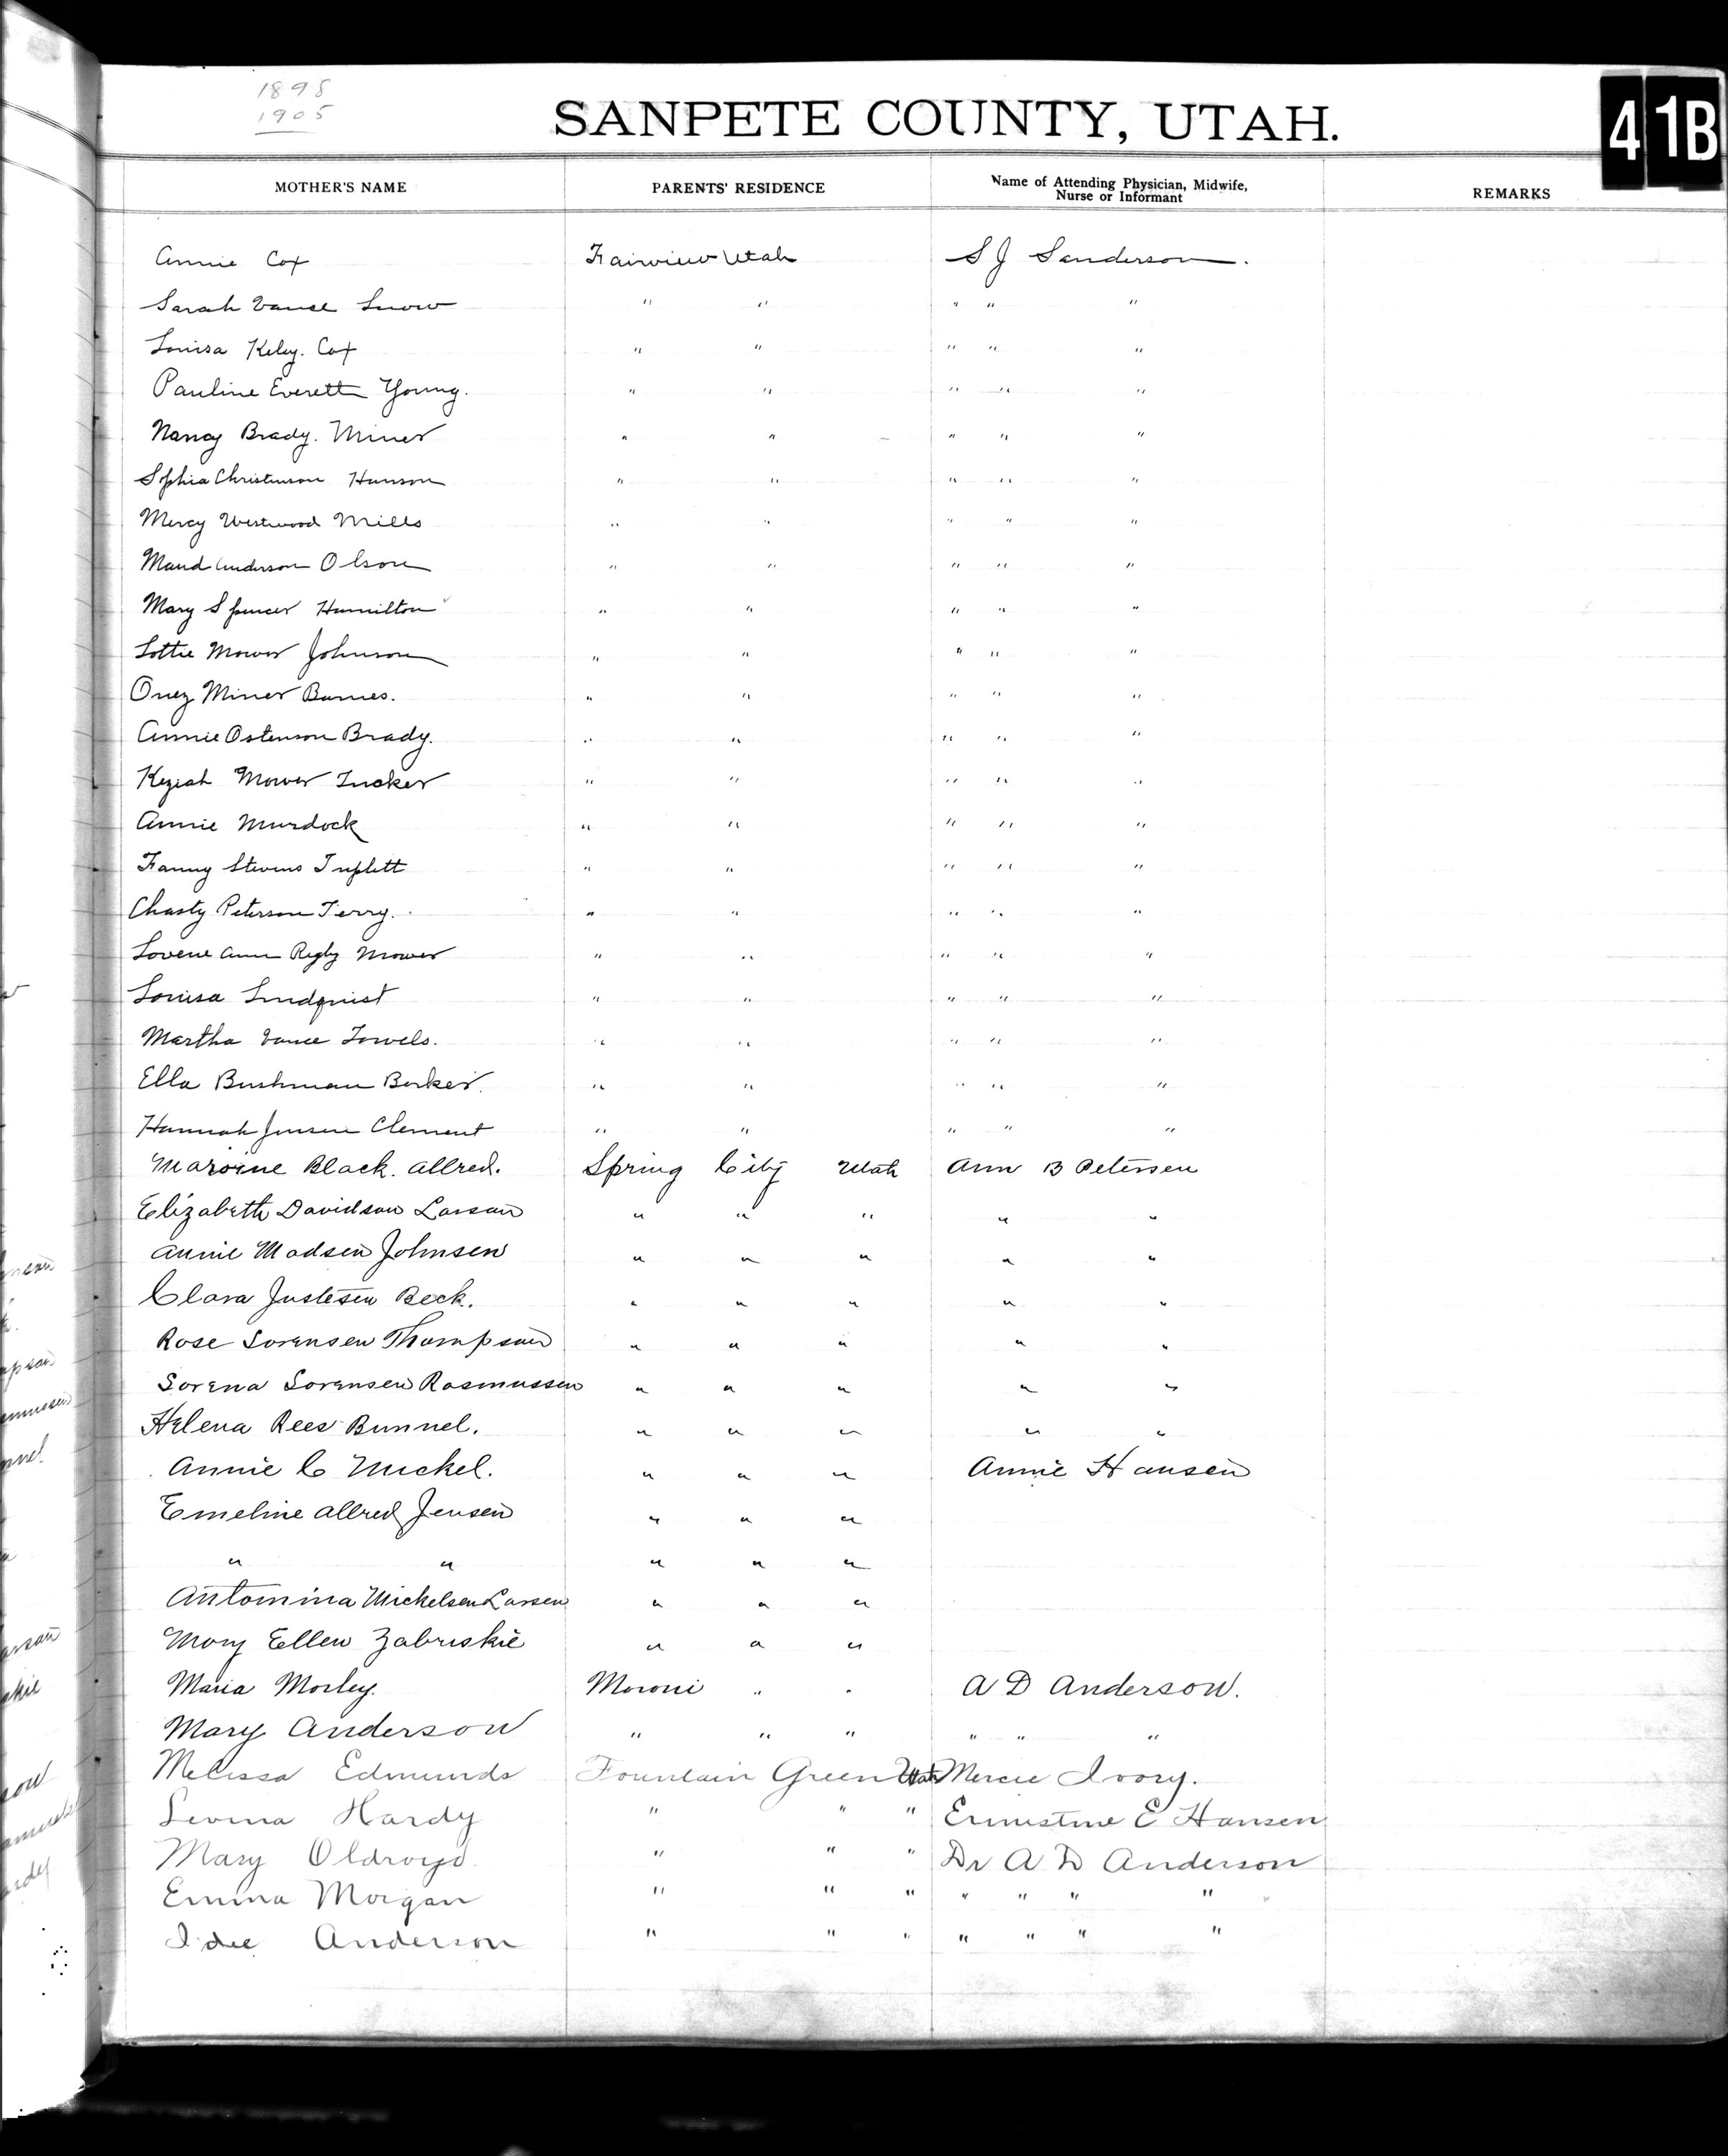 1898
1905
SANPETE COUNTY, UTAH.
41B
MOTHER'S NAME PARENTS' RESIDENCE Name of Attending Physician, Midwife, Nurse or Informant REMARKS
Annie Cox Fairview Utah S J Sanderson.
Sarah Vance Snow " " " " "
Louisa Keley. Cox " " " " "
Pauline Everett Young. " " " " "
Nancy Brady. Miner " " " " "
Sophia Christenson Hanson " " " " "
Mercy Westwood Mills " " " " "
Maud Anderson Olson " " " " "
Mary Spencer Hamilton " " " " "
Lottie Mower Johnson " " " " "
Onez Miner Barnes. " " " " "
Annie Ostenson Brady. " " " " "
Keziah Mower Tucker " " " " "
Annie Murdock " " " " "
Fanny Stevens Triplett " " " " "
Chasty Peterson Terry. " " " " "
Lovene Ann Rigby Mower " " " " "
Louisa Lindquist " " " " "
Martha Vance Fowels. " " " " "
Ella Bushman Barker. " " " " "
Hannah Jensen Clement " " " " "
Black. Allred. Spring City Utah Ann B Petersen
Elizabeth Davidson Larsen " " " " "
Annie Madsen Johnsen " " " " "
Clara Justesen Beck. " " " " "
Rose Sorensen Thompson " " " " "
Sorena Sorensen Rasmussen " " " " "
Helena Rees Bunnel. " " " " "
Annie C Mickel. " " " Annie Hansen
Emeline Allred Jensen " " "
" " " " "
Antomina Mickelsen Larsen " " "
Mary Ellen Zabriskie " " "
Maria Morley. Moroni " " A D Anderson.
Mary Anderson " " " " " "
Melissa Edmunds Fountain Green Utah Mercie Ivory.
Levina Hardy " " " Ernestine E Hansen
Mary Oldroyd " " " Dr A D Anderson
Emma Morgan " " " " " " "
Idee Anderson " " " " " " "